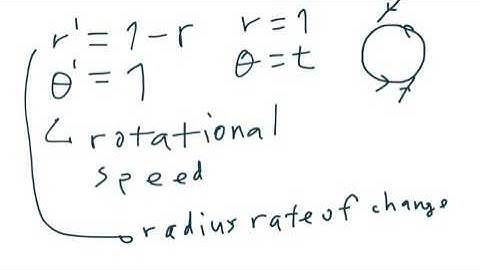 r' = 1 - r r = 1
θ' = 1 θ = t
rotational
speed
radius rate of change